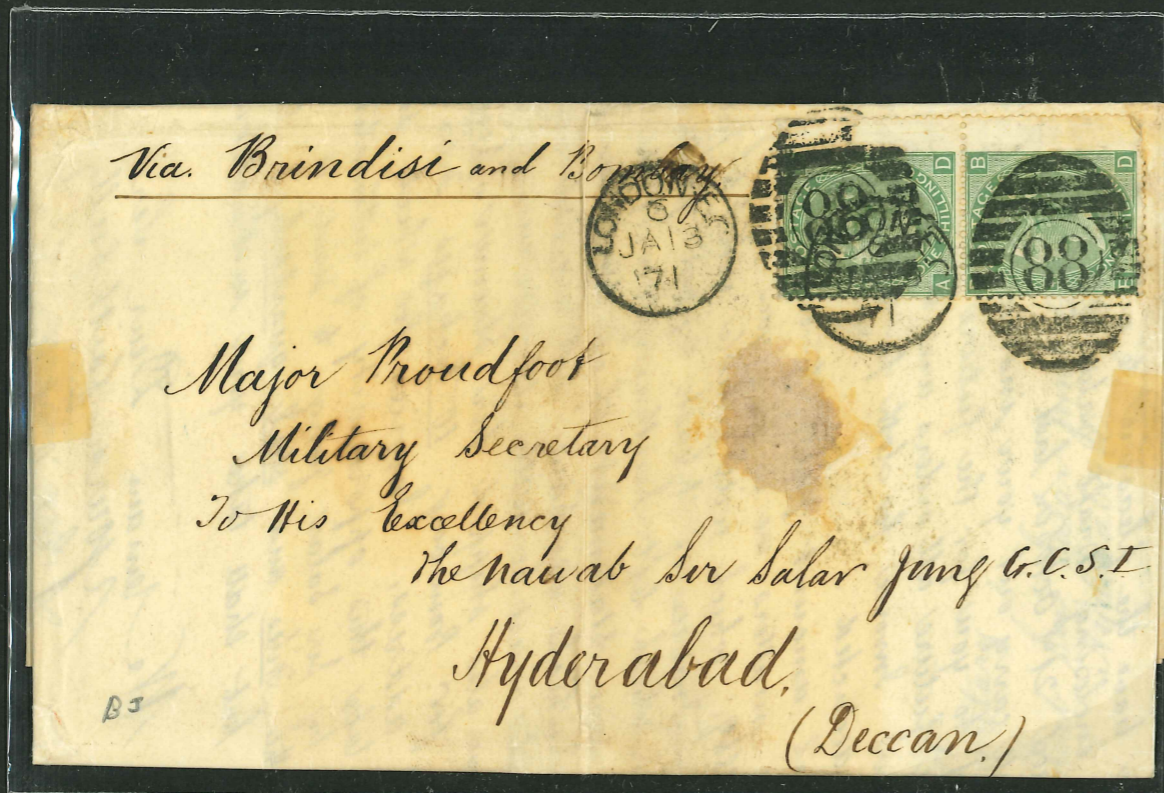 Via. Brindisi and Bombay
LONDON. E.C
6
JA 13
71
88
88
D
B
D
A
Major Proudfoot
Military Secretary
To His Excellency
The Nawab Sir Salar Jung G.C.S.I
Hyderabad.
(Deccan.)
BJ